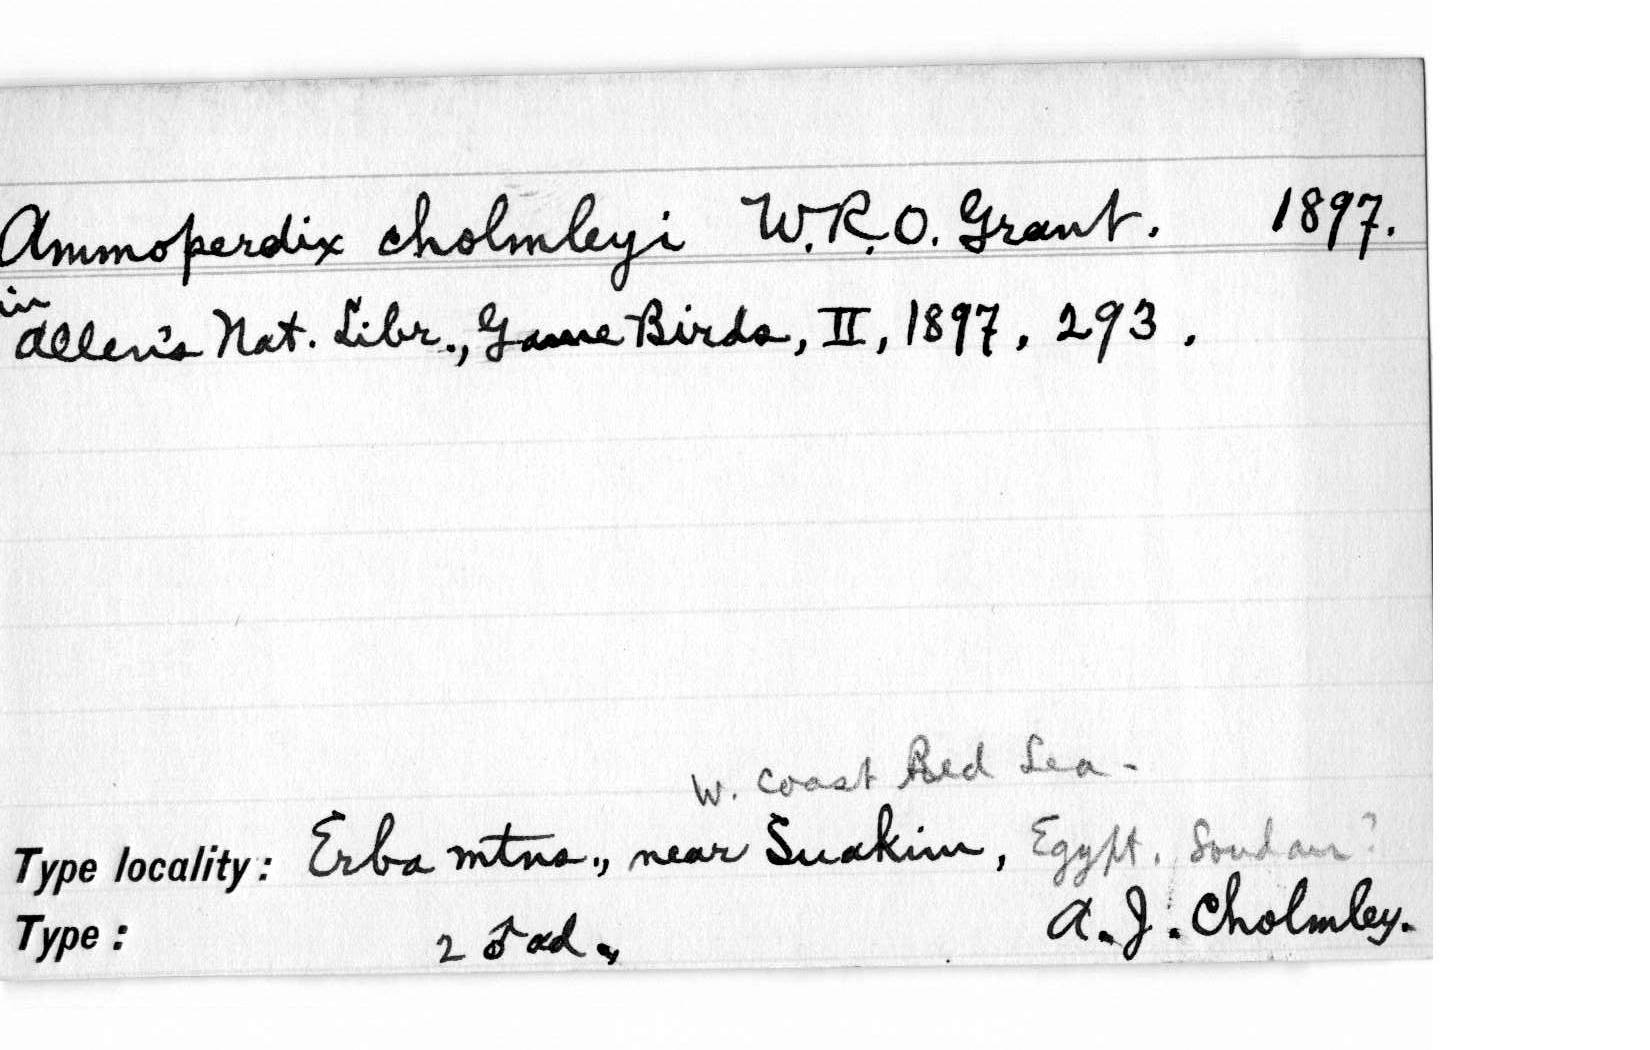 Ammoperdix cholmleyi W.R.O. Grant. 1897.
in
Allen's Nat. Libr., Game Birds, II, 1897, 293.
W. Coast Red Sea -
Type locality: Erba mtns., near Suakim, Egypt. Soudan?
A. J. Cholmley.
Type: 2 ♂ ad.,